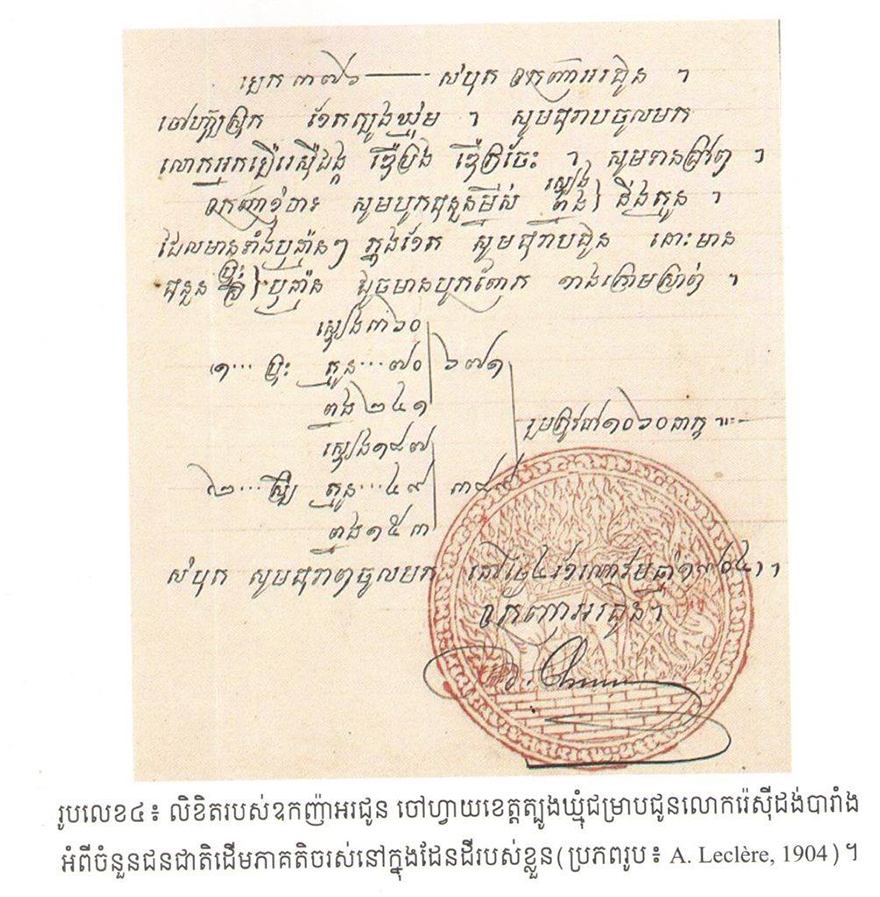 លេខ ៣៧៦ — សំបុត្រ ឧកញ៉ាអរជូន ។
ចៅហ្វាយស្រុក ខែត្រត្បូងឃ្មុំ ។ សូមជំរាបចូលមក
លោកអ្នក
ឧកញ៉ាខ្ញុំបាទ សូម ជួន ស្ទៀង ព្នង } និងគួយ ។
ដែលមានទាំងប៉ុន្មានៗ ក្នុងខែត្រ សូមជំរាបជូន នោះមាន
ចំនួន ប្រុស ស្រី } ប៉ុន្មាន ដូចមាន ខាងក្រោមស្រាប់ ។
ស្ទៀង៣៦០
១... ប្រុស គួយ...៧០ ៦៧១
ព្នង២៤១
រួមត្រូវជា១០៦០នាក់
ស្ទៀង១៨៧
២... ស្រី គួយ...៤៩ ៣៨៩
ព្នង១៥៣
សំបុត្រ សូមជំរាបចូលមក នៅថ្ងៃ៤ ឆ្នាំ១៩០៤ ។
ឧកញ៉ាអរជូន។
រូបលេខ៤៖ លិខិតរបស់ឧកញ៉ាអរជូន ចៅហ្វាយខេត្តត្បូងឃ្មុំជម្រាបជូនលោករ៉េស៊ីដង់បារាំង
អំពីចំនួនជនជាតិដើមភាគតិចរស់នៅក្នុងដែនដីរបស់ខ្លួន(ប្រភពរូប៖ A. Leclère, 1904)។